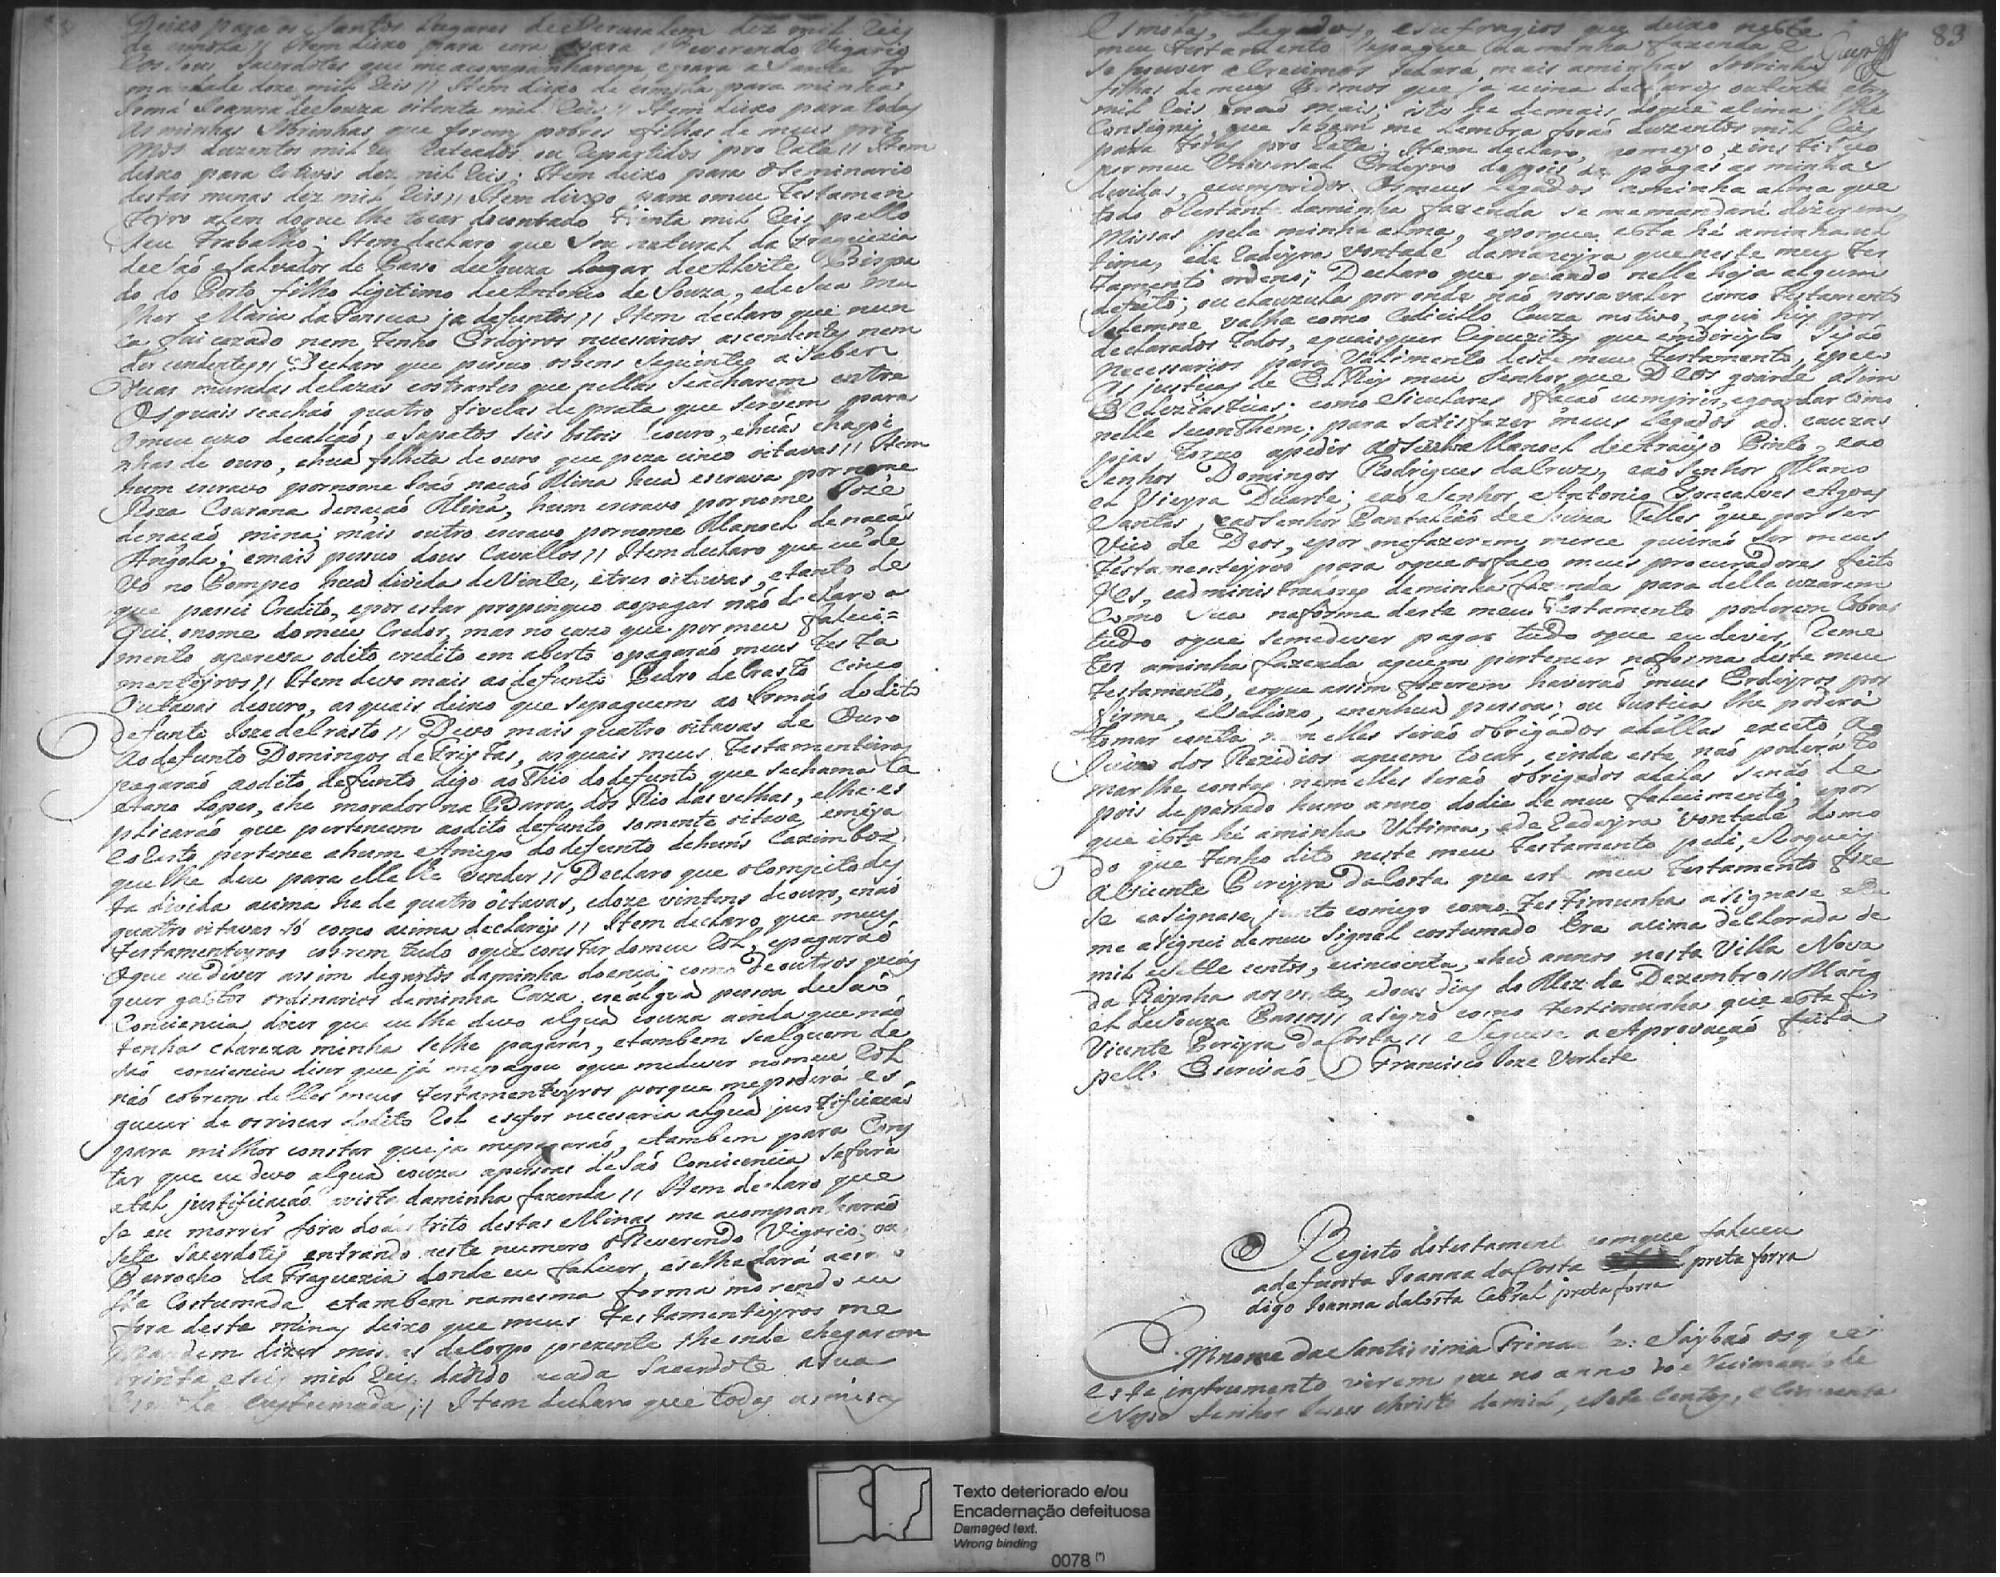 Deixo para os Santos Lugares de Jerusalem dez mil Reis
de esmola // Item deixo para cera para o Reverendo Vigario
e os Sacerdotes que me acompanharem e para a Santa Ir
mandade doze mil Reis // Item deixo de esmola para minha
Irmã Joanna de Souza oitenta mil Reis // Item deixo para todas
as minhas Sobrinhas que forem pobres filhas de meus pri
mos duzentos mil Reis Rateados ou Repartidos pro Rata // Item
deixo para Cativos dez mil Reis; Item deixo para o Seminario
destas minas dez mil Reis // Item deixo para o meu Testamen
teyro alem do que lhe tocar do contado trinta mil Reis pello
Seu Trabalho; Item declaro que Sou natural da Freguezia
de São Salvador de Souza Lugar de Bispa
do do Porto filho Ligitimo de Antonio de Souza, e de Sua mu
lher Maria da Fonseca ja defuntos // Item declaro que nun
ca fui cazado nem tenho Erdeyros necesarios ascendentes nem
descendentes // Declaro que posuo os bens Seguintes a saber
duas moradas de Cazas com trastes que nellas Se acharem entre
Os quais se achaõ quatro fivelas de prata que servem para
o meu uzo de calçaõ, e Sapatos Seis botois de ouro, e huãs chapi
nhas de ouro, e huã folheta de ouro que peza cinco oitavas // Item
hum escravo por nome Joaõ naçaõ Mina huã escrava por nome
Roza Courana de naçaõ Mina, hum escravo por nome Joze
de naçaõ mina; mais outro escravo por nome Manoel de naçaõ
Angola; e mais posuo dous Cavallos // Item declaro que eu de
vo no Pompeo huã divida de Vinte, e tres oitavas, e tanto de
que pasei Credito, e por estar propinquo a o pagar não declaro a
qui o nome do meu Credor, mas no cazo que por meu faleci=
mento apareça o dito credito em aberto o pagaraõ meus testa
menteyros // Item devo mais ao defunto Pedro de Crasto Cinco
Outavas de ouro, as quais deixo que se paguem ao Irmaõ do dito
defunto Joze de Crasto // Devo mais quatro oitavas de Ouro
ao defunto Domingos de Freitas, as quais meus Testamenteiros
pagaraõ ao dito defunto digo ao Thio do defunto que se chama Ca
etano Lopes, e he morador na Barra do Rio das velhas, e lhe es
plicaraõ que pertencem ao dito defunto somente oitava e meya
e o Resto pertence a hum Amigo do defunto de huns Caximbos
que lhe deu para elle lhe vender // Declaro que o Computo des
ta divida acima he de quatro oitavas, e doze vintens de ouro, e naõ
quatro oitavas Só como acima declarei // Item declaro que meus
Testamenteyros cobrem tudo o que constar do meu Rol, e pagaraõ
o que eu dever assim de gastos da minha doença, como de outros quais
quer gastos ordinarios da minha Caza e se algua pesoa de Saõ
Consciencia diser que eu lhe devo algua couza ainda que naõ
tenha clareza minha se lhe pagara, e tambem se alguem de
Saõ conciencia diser que já me pagou o que me dever no meu Rol
naõ cobrem delles meus testamenteyros porque me poderá es
quecer de o riscar do dito Rol e se for necesaria algua justificaçaõ
para milhor constar que ja me pagaraõ, e tambem para Cons
tar que eu devo algua couza a pesoas de Saõ Conciencia se fara
a tal justificaçaõ a custa da minha fazenda // Item declaro que
se eu morrer fora do destrito destas Minas me acompanharaõ
sete Sacerdotes entrando neste numero o Reverendo Vigario, ou
Parrocho da Freguezia donde eu falecer, e se lhe dará a es mo
la Costumada, e tambem na mesma forma morendo eu
fora destas minas deixo que meus Testamenteyros me
mandem dizer misas de Corpo prezente the onde chegarem
trinta e seis mil Reis dando a cada Sacerdote a sua
esmola Custumada // Item declaro que todas as misas
esmolas, Legados, e sufragios que deixo neste
meu testamento se pague da minha fazenda, e
se houver acrecimos se dará mais a minhas Sobrinhas
filhas de meus Primos que ja acima declarei outenta
mil Reis e naõ mais, isto he de mais do que acima lhe
Consignei, que se bem me Lembra foraõ duzentos mil Reis
para todas pro Rata: Item declaro, nomeyo, e instituo
por meu Universal Erdeyro depois de pagas as minhas
dividas, e cumpridos Os meus Legados a minha alma que
todo o Restante da minha fazenda se me mandará dizer em
Missas pela minha alma, e porque esta hé a minha ul
tima, e de Radeyra vontade da maneyra que neste meu Tes
tamento ordeno; Declaro que quando nelle haja algum
defeito; ou clauzula por onde naõ possa valer como testamento
Solemne, valha como Codicillo Couza motivo, aqui hei por
declarados todos, e quaisquer Requezitos que em direyto Sejaõ
necessarios para Valimento deste meu Testamento, e peço
as justiças de El Rey meu Senhor que Deos guarde asim
Eclezeasticas; como Siculares o façaõ cumprir, e goardar como
nelle se conthem; para satisfazer meus Legados ad cauzas
pias torno a pedir ao Senhor Manoel de Araujo Pinto, e ao
Senhor Domingos Rodrigues da Cruz, e ao Senhor Mano
el Vieyra Duarte; e ao Senhor Antonio Gonçalves Agoas
Santas, e ao Senhor Pantaliaõ de Souza Telles que por ser
viço de Deos, e por me fazerem merce queiraõ Ser meus
Testamenteyros para o que os faço meus procuradores feito
res, e administradores da minha fazenda para della uzarem
Como Sua na forma deste meu Testamento poderem Cobrar
tudo o que se me dever pagar tudo o que eu dever, Reme
ter a minha fazenda a quem pertencer na forma deste meu
testamento, e o que assim fizerem haveraõ meus Erdeyros por
firme, e Valiozo, e nenhuã pesoa; ou Justiça lhe poderá
tomar conta nem elles seraõ obrigados a dallas exceto o
Juizo dos Rezidios a quem tocar, e inda este naõ poderá to
mar lhe contas nem elles seraõ obrigados a dalas Senaõ de
pois de pasado hum anno do dia de meu falecimento; e por
que esta hé a minha Ultima, e de Radeyra vontade do mo
do que tenho dito neste meu testamento pedi, e Roguei
a Vicente Pereyra da Costa que este meu testamento fize
se e asignase junto comigo como Testimunha asignase e eu
me asignei de meu Signal costumado Era acima declarada de
mil e Sette centos, e cincoenta, e hum annos nesta Villa Nova
da Raynha aos vinte, e dous dias do Mez de Dezembro // Mano
el de Souza Barros // asigno como testimunha que esta fis
Vicente Pereyra da Costa // e Seguese a Aprovaçaõ feita
pello Escrivaõ Francisco Joze Verdete
83
Registo do testamento com que faleceu
a defunta Joanna da Costa preta forra
digo Joanna da Costa Cabral preta forra
Em nome da Santissima Trindade: Saybaõ os que
este instrumento virem que no anno do Nacimento de
Nosso Senhor Jesus Christo de mil, e Sete Centos, e Cincoenta
Texto deteriorado e/ou
Encadernação defeituosa
Damaged text.
Wrong binding
0078 (*)